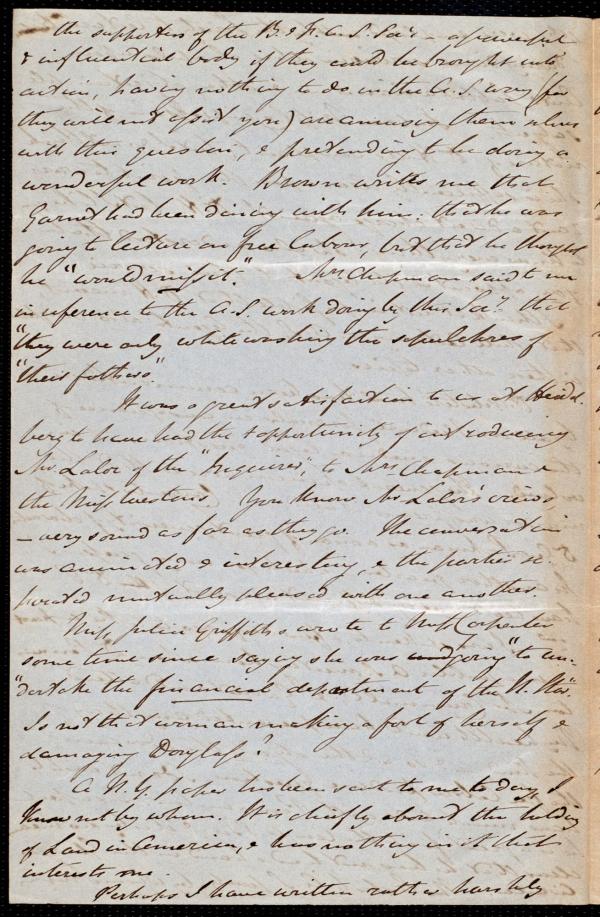 the supporters of the B. & F. A. S. Soc^y. – a powerful
& influential body if they could be brought into
action, having nothing to do in the A. S. way (for
they will not assist you) are amusing themselves
with this question, & pretending to be doing a
wonderful work. Brown writes me that
Garnet had been dining with him: that he was
going to lecture on free labour, but that he thought
he "would miss it." Mrs Chapman said to me
in reference to the A. S. work doing by this Soc^y. that
"they were only whitewashing the sepulchres of
"their fathers."
It was a great satisfaction to us at Heidel
berg to have had the opportunity of introducing
Mr Lalor of the "Inquirer", to Mrs Chapman &
the Miss Westons. You know Mr Lalor's views,
– very sound as far as they go. The conversation
was animated & interesting, & the parties se-
parated mutually pleased with one another.
Miss Julia Griffiths wrote to Miss Carpenter
some time since saying she was going "to un-
"dertake the financial department of the N. Star".
Is not that woman making a fool of herself &
damaging Douglass?
A N. Y. paper has been sent to me to day, I
know not by whom. It is chiefly about the holding
of Land in America, & has nothing in it that
interests me.
Perhaps I have written rather harshly